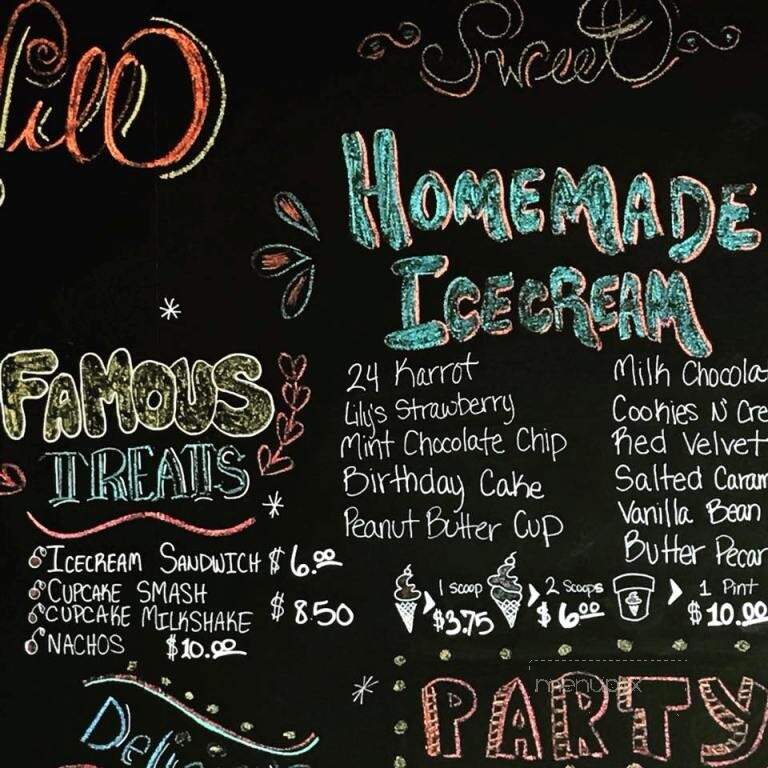 Sweet
HOMEMADE
ICECREAM
24 Karrot
Lily's Strawberry
Mint Chocolate Chip
Birthday Cake
Peanut Butter Cup
Milk Chocola
Cookies N' Cre
Red Velvet
Salted Caram
Vanilla Bean
Butter Pecan
1 scoop
$3.75
2 Scoops
$6.00
1 Pint
$10.00
FAMOUS
TREATS
ICECREAM SANDWICH $6.00
CUPCAKE SMASH
CUPCAKE MILKSHAKE $8.50
NACHOS $10.00
PARTY
menupix